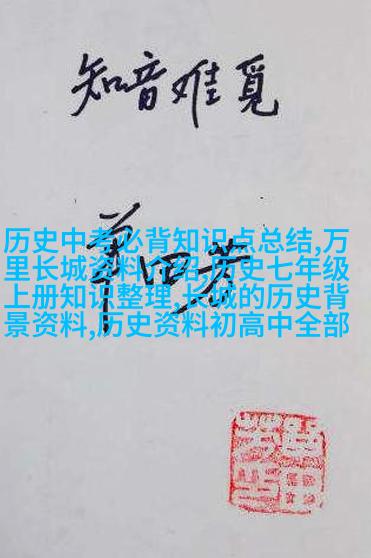 知音难觅
单田芳
历史中考必背知识点总结,万
里长城资料介绍,历史七年级
上册知识整理,长城的历史背
景资料,历史资料初高中全部